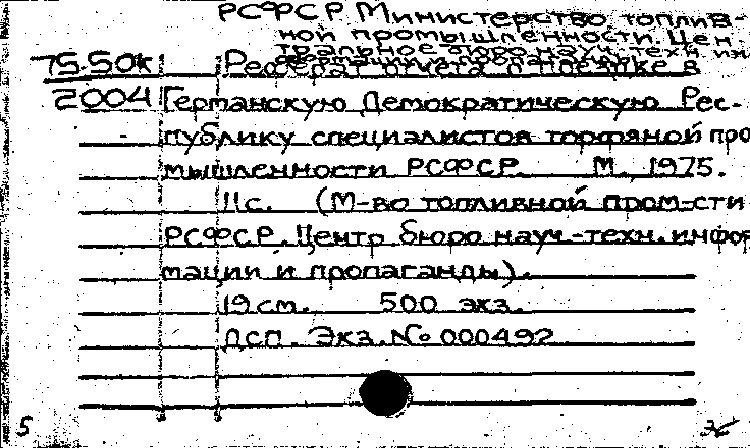 РСФСР. Министерство топлив-
ной промышленности. Цен-
тральное бюро науч.-техн. ин
формации и пропаганды.
75.50к Реферат отчета о поездке в
2004 Германскую Демократическую Рес-
публику специалистов торфяной про
мышленности РСФСР. М., 1975.
11с. (М-во топливной пром-сти
РСФСР. Центр. бюро науч.-техн. инфор
мации и пропаганды).
19см. 500 экз.
ДСП. Экз. № 000492
5